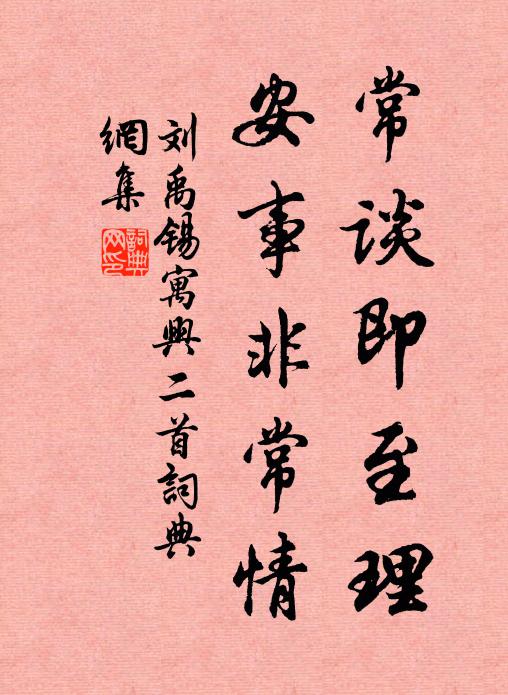 常谈即至理
安事非常情
刘禹锡寓興二首詞典
網集
詞典網印